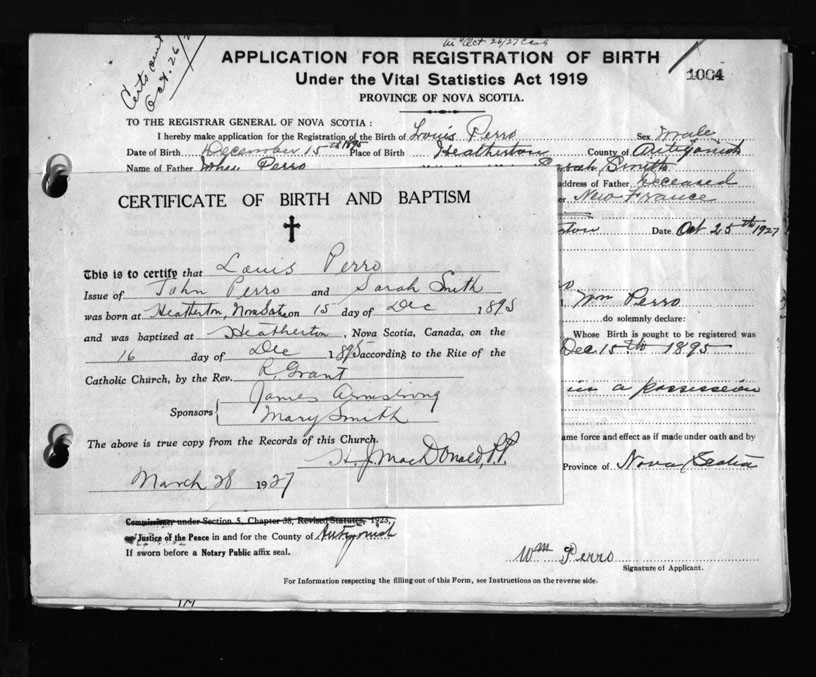 Certs out
Oct. 26/2
Oct 26/27 Cash
APPLICATION FOR REGISTRATION OF BIRTH
Under the Vital Statistics Act 1919
1004
PROVINCE OF NOVA SCOTIA.
TO THE REGISTRAR GENERAL OF NOVA SCOTIA :
I hereby make application for the Registration of the Birth of Louis Perro Sex Male
Date of Birth December 15th 1895 Place of Birth Heatherton County of Antigonish
Name of Father John Perro Sarah Smith
address of Father Deceased
New France
Date Oct 25th 1927
CERTIFICATE OF BIRTH AND BAPTISM
This is to certify that Louis Perro
Issue of John Perro and Sarah Smith
was born at Heatherton, on 15 day of Dec 1895
and was baptized at Heatherton, Nova Scotia, Canada, on the
16 day of Dec 1895 according to the Rite of the
Catholic Church, by the Rev. R. Grant
Sponsors { James Armstrong
Mary Smith
The above is true copy from the Records of this Church.
H. J. MacDonald, P.P.
March 28 1927
Wm Perro
do solemnly declare:
Whose Birth is sought to be registered was
Dec 15th 1895
in a possession
ame force and effect as if made under oath and by
Province of Nova Scotia
Commissioner under Section 5, Chapter 38, Revised Statutes, 1923,
or Justice of the Peace in and for the County of Antigonish
If sworn before a Notary Public affix seal.
Wm Perro
Signature of Applicant.
For Information respecting the filling out of this Form, see Instructions on the reverse side.